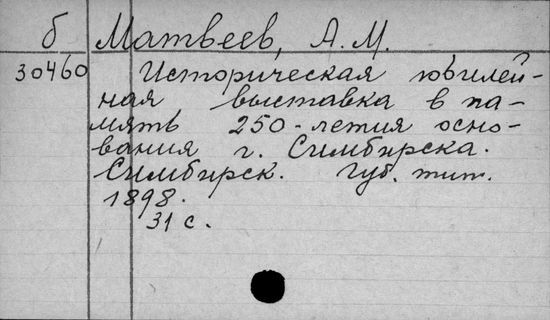 б Матвеев, А.М.
30460 Историческая юбилей-
ная выставка в па-
мять 250-летия осно-
вания г. Симбирска.
Симбирск. Губ. тип.
1898.
31 с.